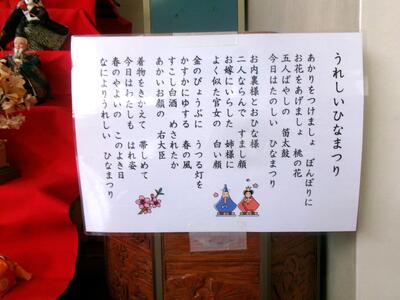 うれしいひなまつり
あかりをつけましょ ぼんぼりに
お花をあげましょ 桃の花
五人ばやしの 笛太鼓
今日はたのしい ひなまつり
お内裏様とおひな様
二人ならんで すまし顔
お嫁にいらした 姉様に
よく似た官女の 白い顔
金のびょうぶに うつる灯を
かすかにゆする 春の風
すこし白酒 めされたか
あかいお顔の 右大臣
着物をきかえて 帯しめて
今日はわたしも はれ姿
春のやよいの このよき日
なによりうれしい ひなまつり